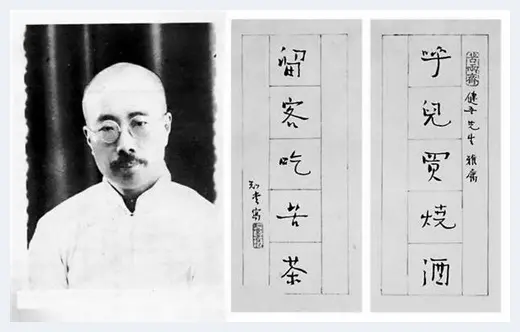 苦雨齋
健 先生 雅屬
呼兒買燒酒
留客吃苦茶
知堂寫